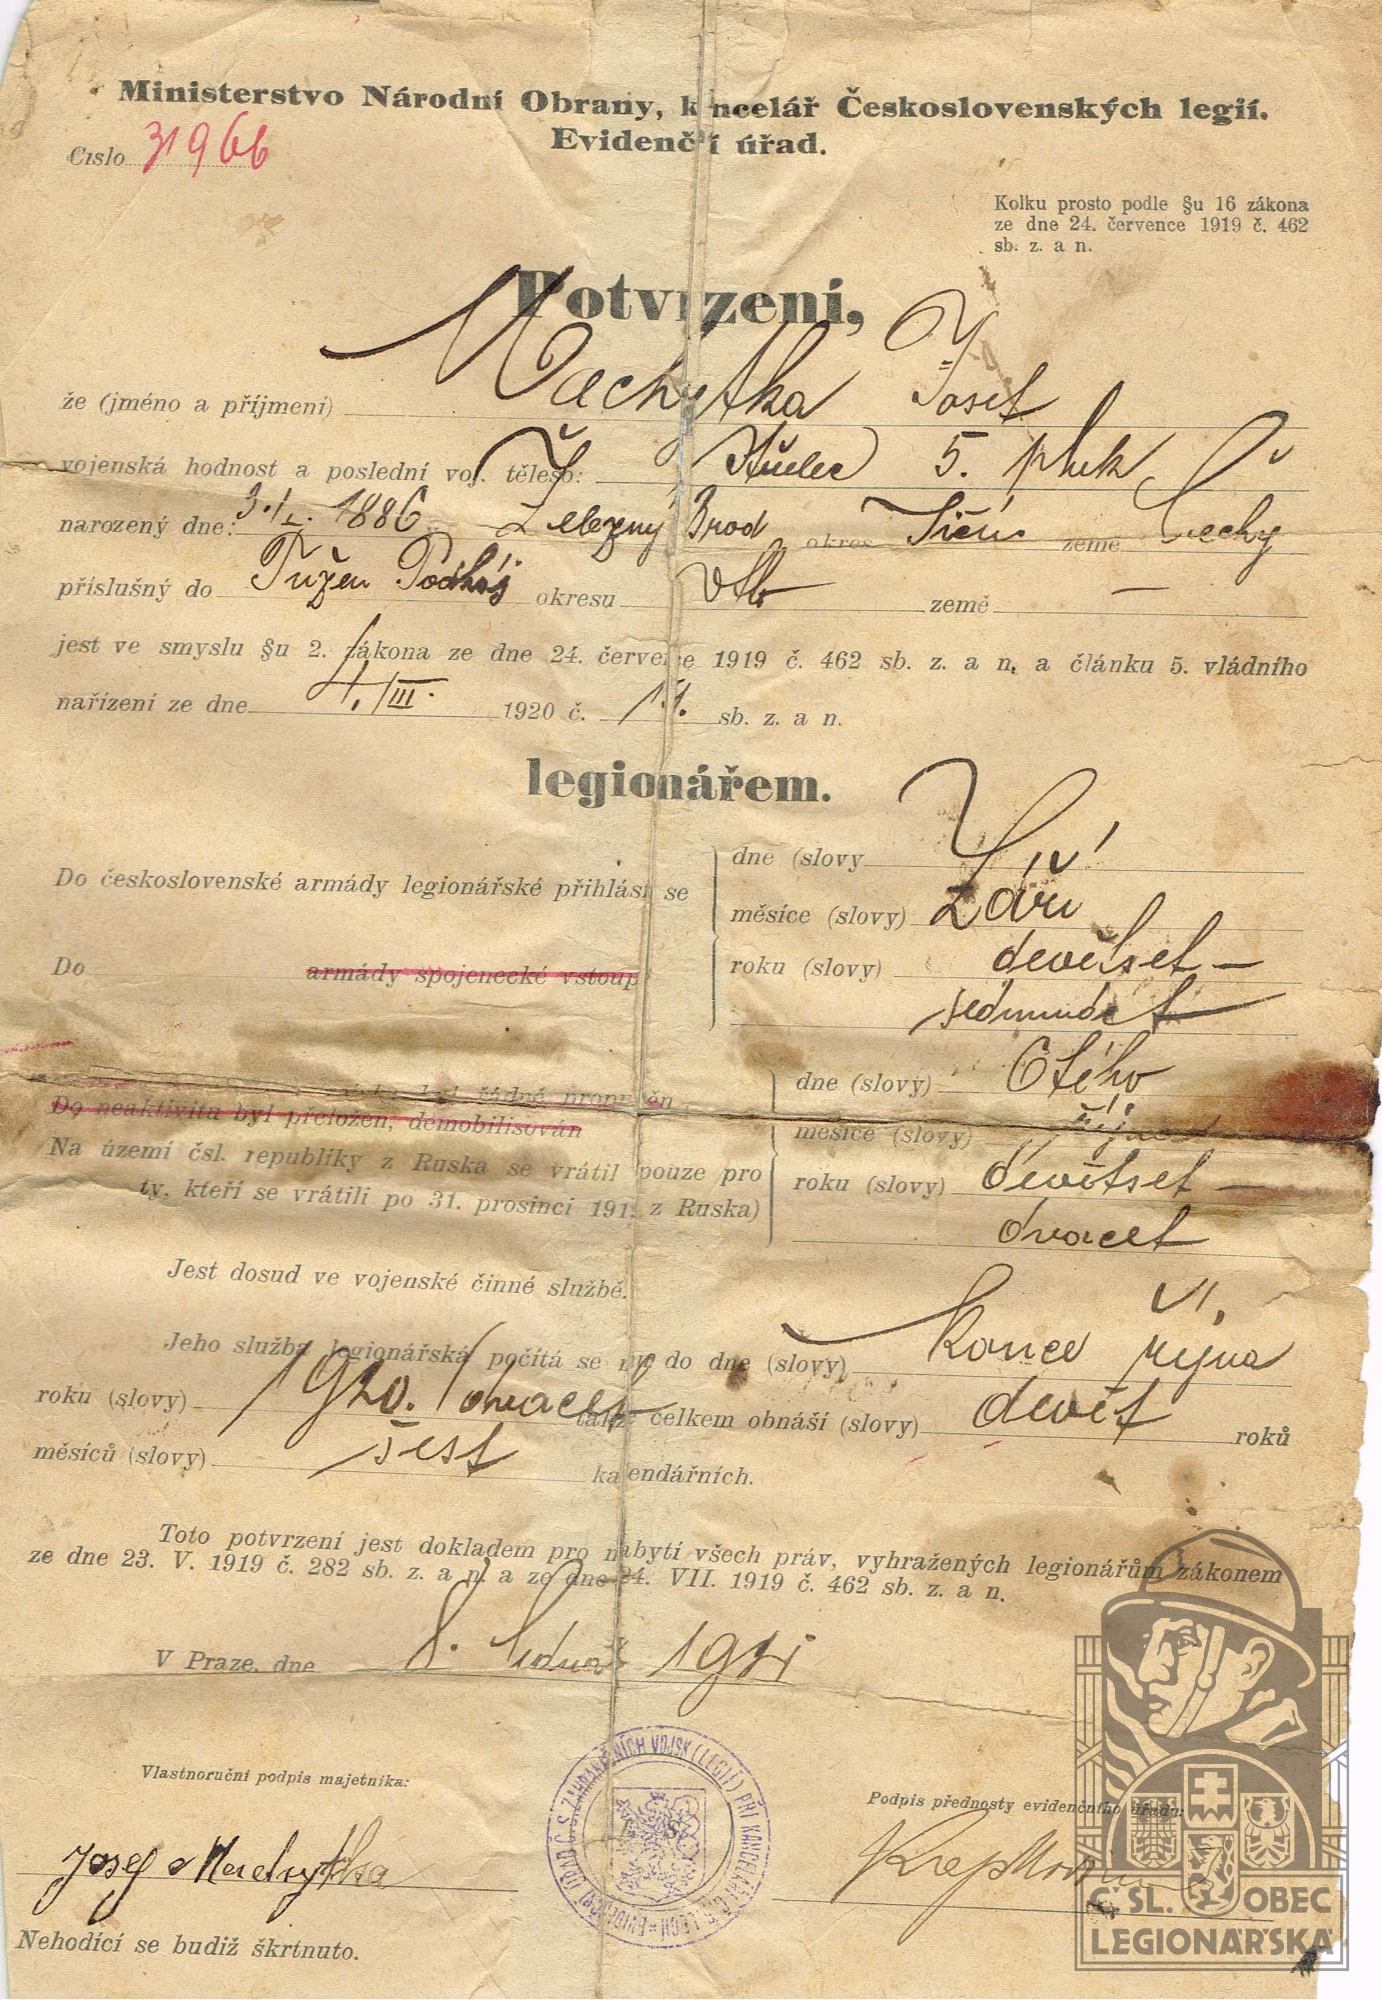 Ministerstvo Národní Obrany, k ncelář Československých legií.
Evidenč í úřad.
Číslo 31966
Kolku prosto podle §u 16 zákona
ze dne 24. července 1919 č. 462
sb. z. a n.
Potvrzení,
že (jméno a příjmení) Machytka Josef
vojenská hodnost a poslední voj. těleso: Střelec 5. pluk
narozený dne: 3./I. 1886 v Železný Brod okres Jičín země Čechy
příslušný do Pužen Podhůj okresu země —
jest ve smyslu §u 2. zákona ze dne 24. července 1919 č. 462 sb. z. a n, a článku 5. vládního
nařízení ze dne 4./III. 1920 č. sb. z. a n.
legionářem.
Do československé armády legionářské přihlási se
dne (slovy
měsíce (slovy) Září
Do armády spojenecké vstoup
roku (slovy) devětset —
sedmnáct
řádně propuštěn
dne (slovy)
Do neaktivitu byl přeložen, demobilisován
měsíce (slovy) října
Na území čsl. republiky z Ruska se vrátil pouze pro
ty, kteří se vrátili po 31. prosinci 191 z Ruska)
roku (slovy) devětset —
dvacet
Jest dosud ve vojenské činné službě.
VI.
Jeho služba legionářská počítá se mu do dne (slovy) konce října
roku (slovy) 1920. dvacet takže celkem obnáší (slovy) devět roků
měsíců (slovy) šest kalendářních.
Toto potvrzení jest dokladem pro nabytí všech práv, vyhražených legionářům zákonem
ze dne 23. V. 1919 č. 282 sb. z. a n. a ze dne 24. VII. 1919 č. 462 sb. z. a n.
V Praze, dne 8. ledna 1921
Vlastnoruční podpis majetníka:
Podpis přednosty evidenčního úřadu:
Josef Machytka
EVIDENČNÍ ÚŘAD Č. S. ZAHRANIČNÍCH VOJSK (LEGIÍ) PŘI KANCELÁŘI Č. S. LEGIÍ
Nehodící se budiž škrtnuto.
Č SL. OBEC
LEGIONÁŘSKÁ